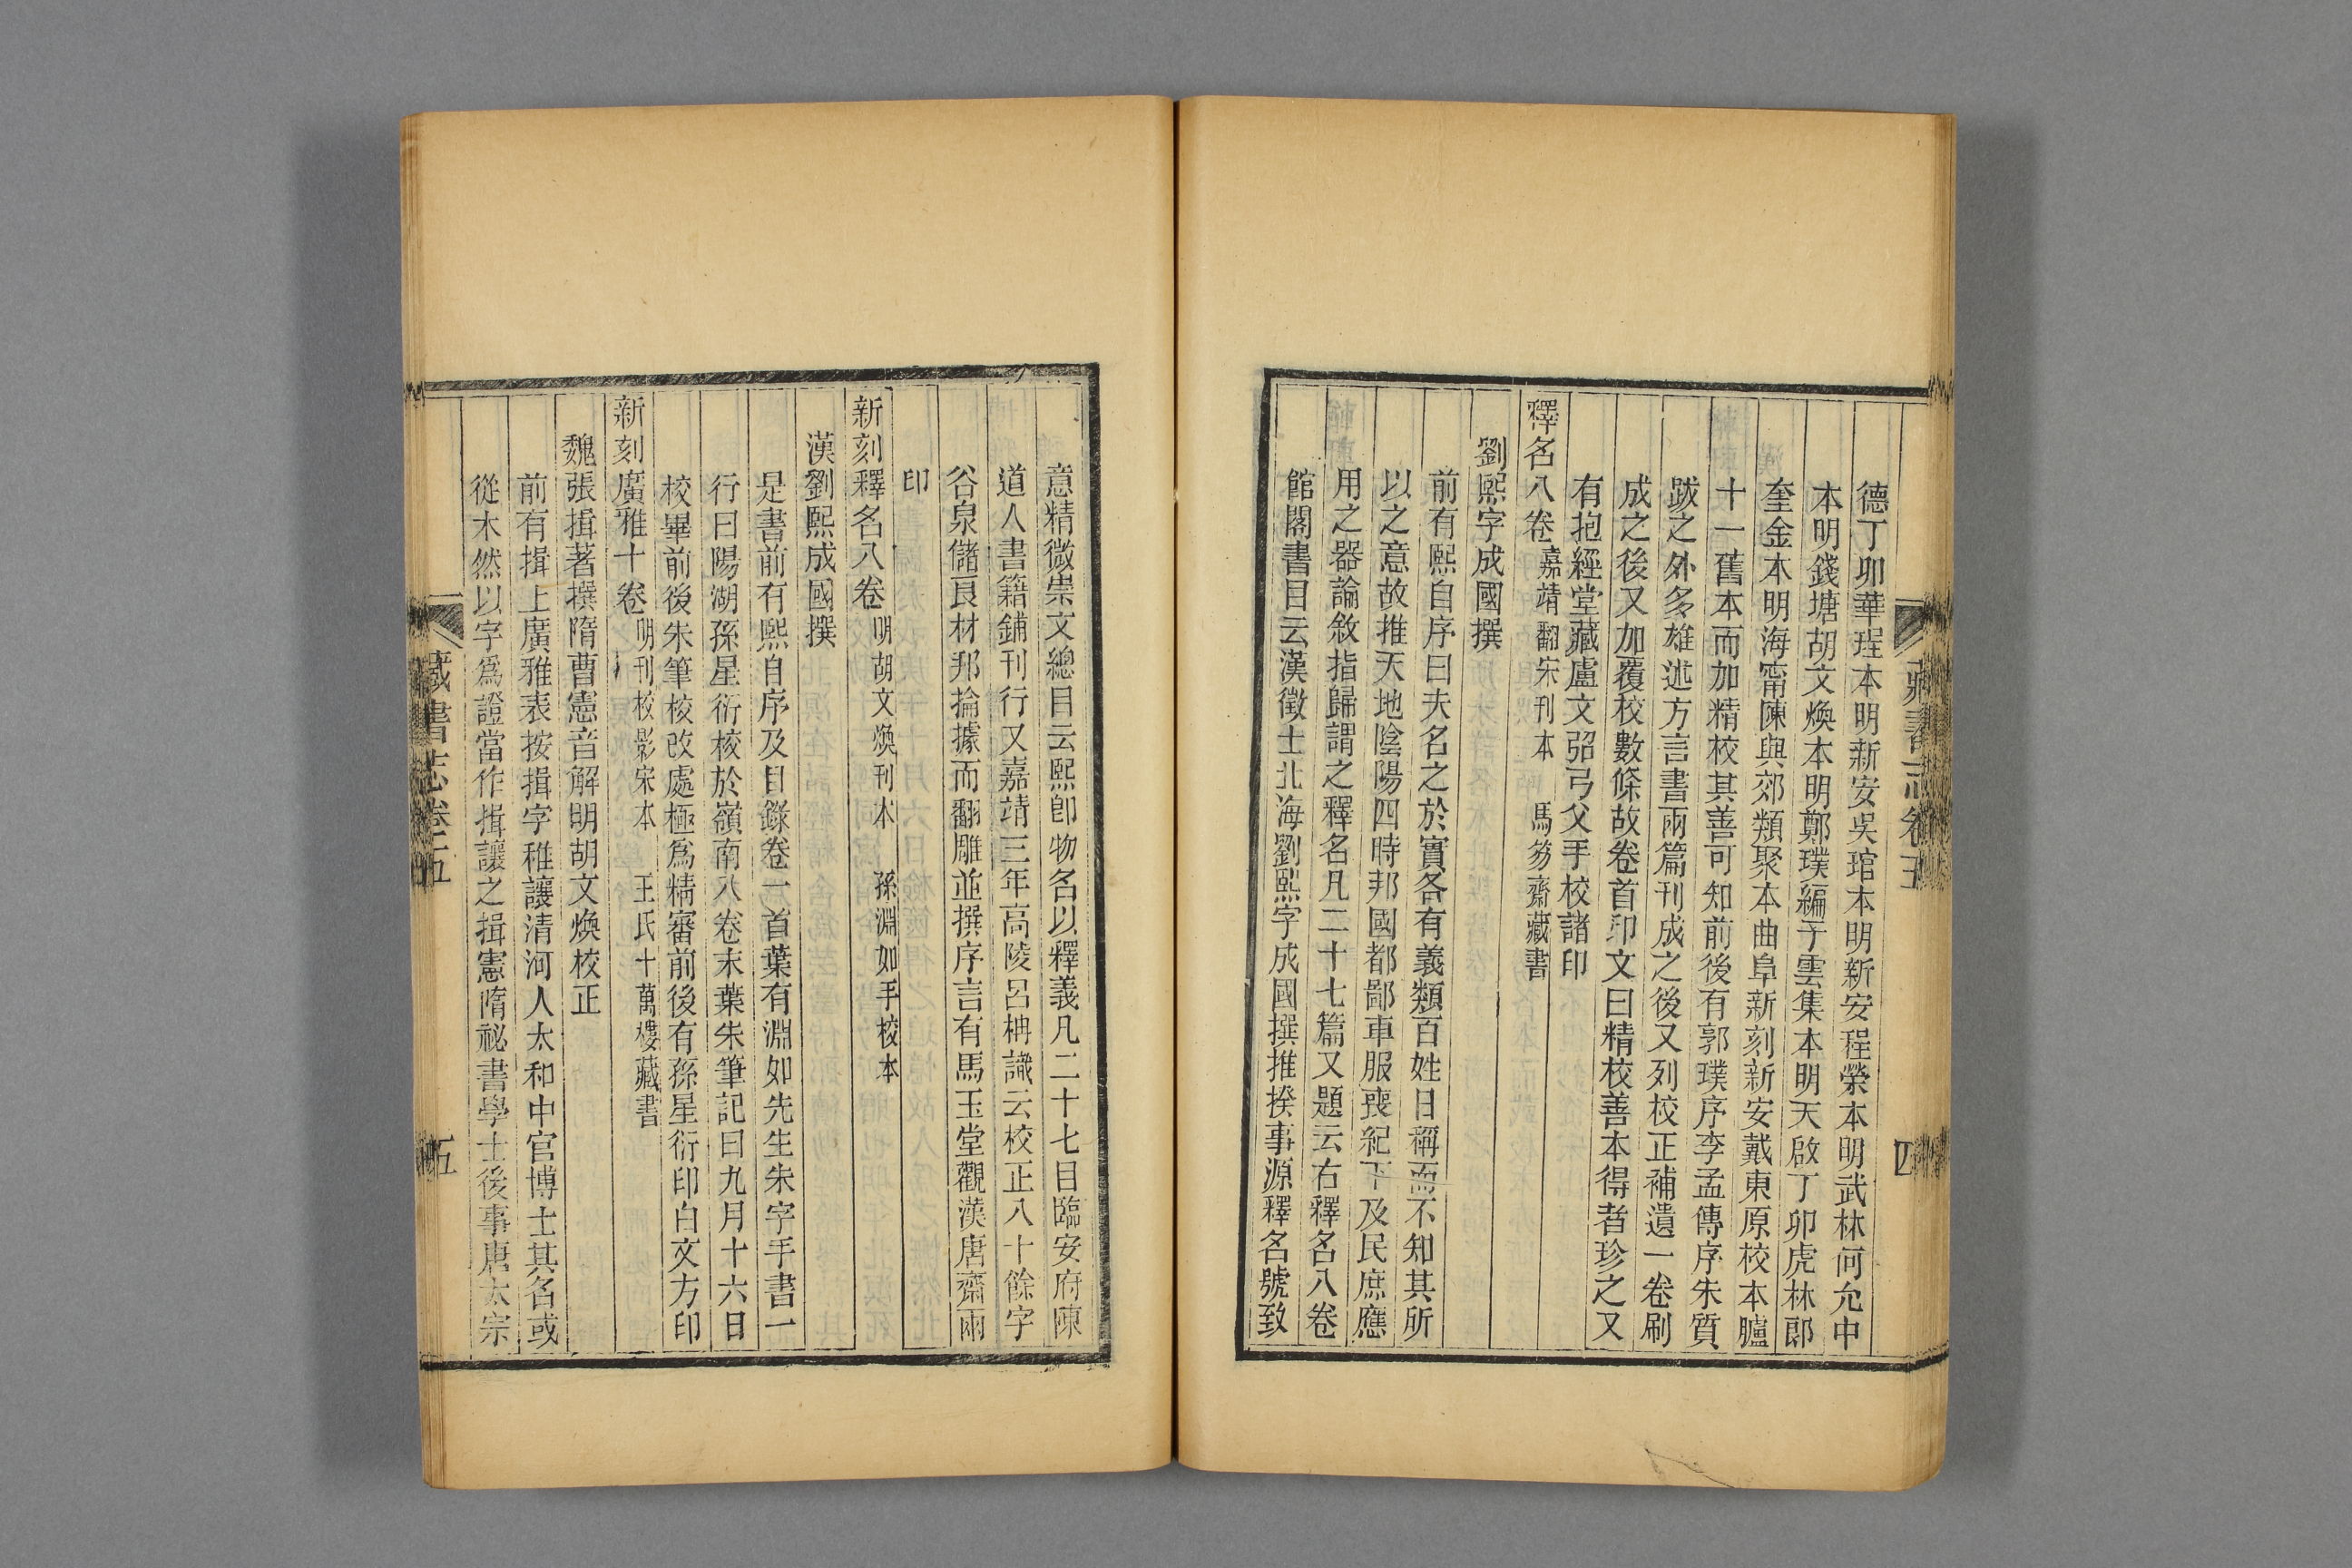 德丁卯華珵本明新安吳琯本明新安程榮本明武林何允中
本明錢塘胡文煥本明鄭璞編子雲集本明天啟丁卯虎林郎
奎金本明海甯陳與郊類聚本曲阜新刻新安戴東原校本臚
十一舊本而加精校其善可知前後有郭璞序李孟傳序朱質
跋之外多雄述方言書兩篇刊成之後又列校正補遺一卷刷
成之後又加覆校數條故卷首印文曰精校善本得者珍之又
有抱經堂藏盧文弨弓父手校諸印
釋名八卷 嘉靖翻宋刊本 馬笏齋藏書
劉熙字成國撰
前有熙自序曰夫名之於實各有義類百姓日稱而不知其所
以之意故推天地陰陽四時邦國都鄙車服喪紀下及民庶應
用之器論敘指歸謂之釋名凡二十七篇又題云右釋名八卷
館閣書目云漢徵士北海劉熙字成國撰推揆事源釋名號致
藏書志卷五
四
意精微崇文總目云熙即物名以釋義凡二十七目臨安府陳
道人書籍鋪刊行又嘉靖三年高陵呂柟識云校正八十餘字
谷泉儲良材邦掄據而翻雕並撰序言有馬玉堂觀漢唐齋兩
印
新刻釋名八卷 明胡文煥刊本 孫淵如手校本
漢劉熙成國撰
是書前有熙自序及目錄卷一首葉有淵如先生朱字手書一
行曰陽湖孫星衍校於嶺南八卷末葉朱筆記曰九月十六日
校畢前後朱筆校改處極爲精審前後有孫星衍印白文方印
新刻廣雅十卷 明刊校影宋本 王氏十萬樓藏書
魏張揖著撰隋曹憲音解明胡文煥校正
前有揖上廣雅表按揖字稚讓清河人太和中官博士其名或
從木然以字爲證當作揖讓之揖憲隋祕書學士後事唐太宗
藏書志卷五
五